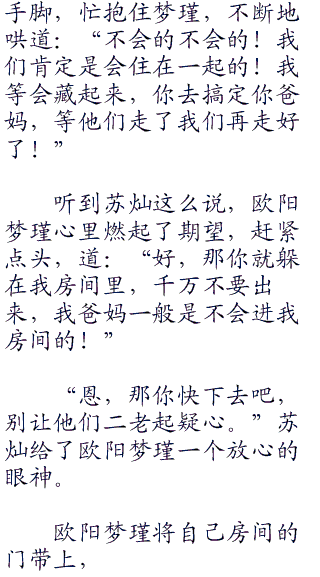 手脚，忙抱住梦瑾，不断地
哄道：“不会的不会的！我
们肯定是会住在一起的！我
等会藏起来，你去搞定你爸
妈，等他们走了我们再走好
了！”
听到苏灿这么说，欧阳
梦瑾心里燃起了期望，赶紧
点头，道：“好，那你就躲
在我房间里，千万不要出
来，我爸妈一般是不会进我
房间的！”
“恩，那你快下去吧，
别让他们二老起疑心。”苏
灿给了欧阳梦瑾一个放心的
眼神。
欧阳梦瑾将自己房间的
门带上，